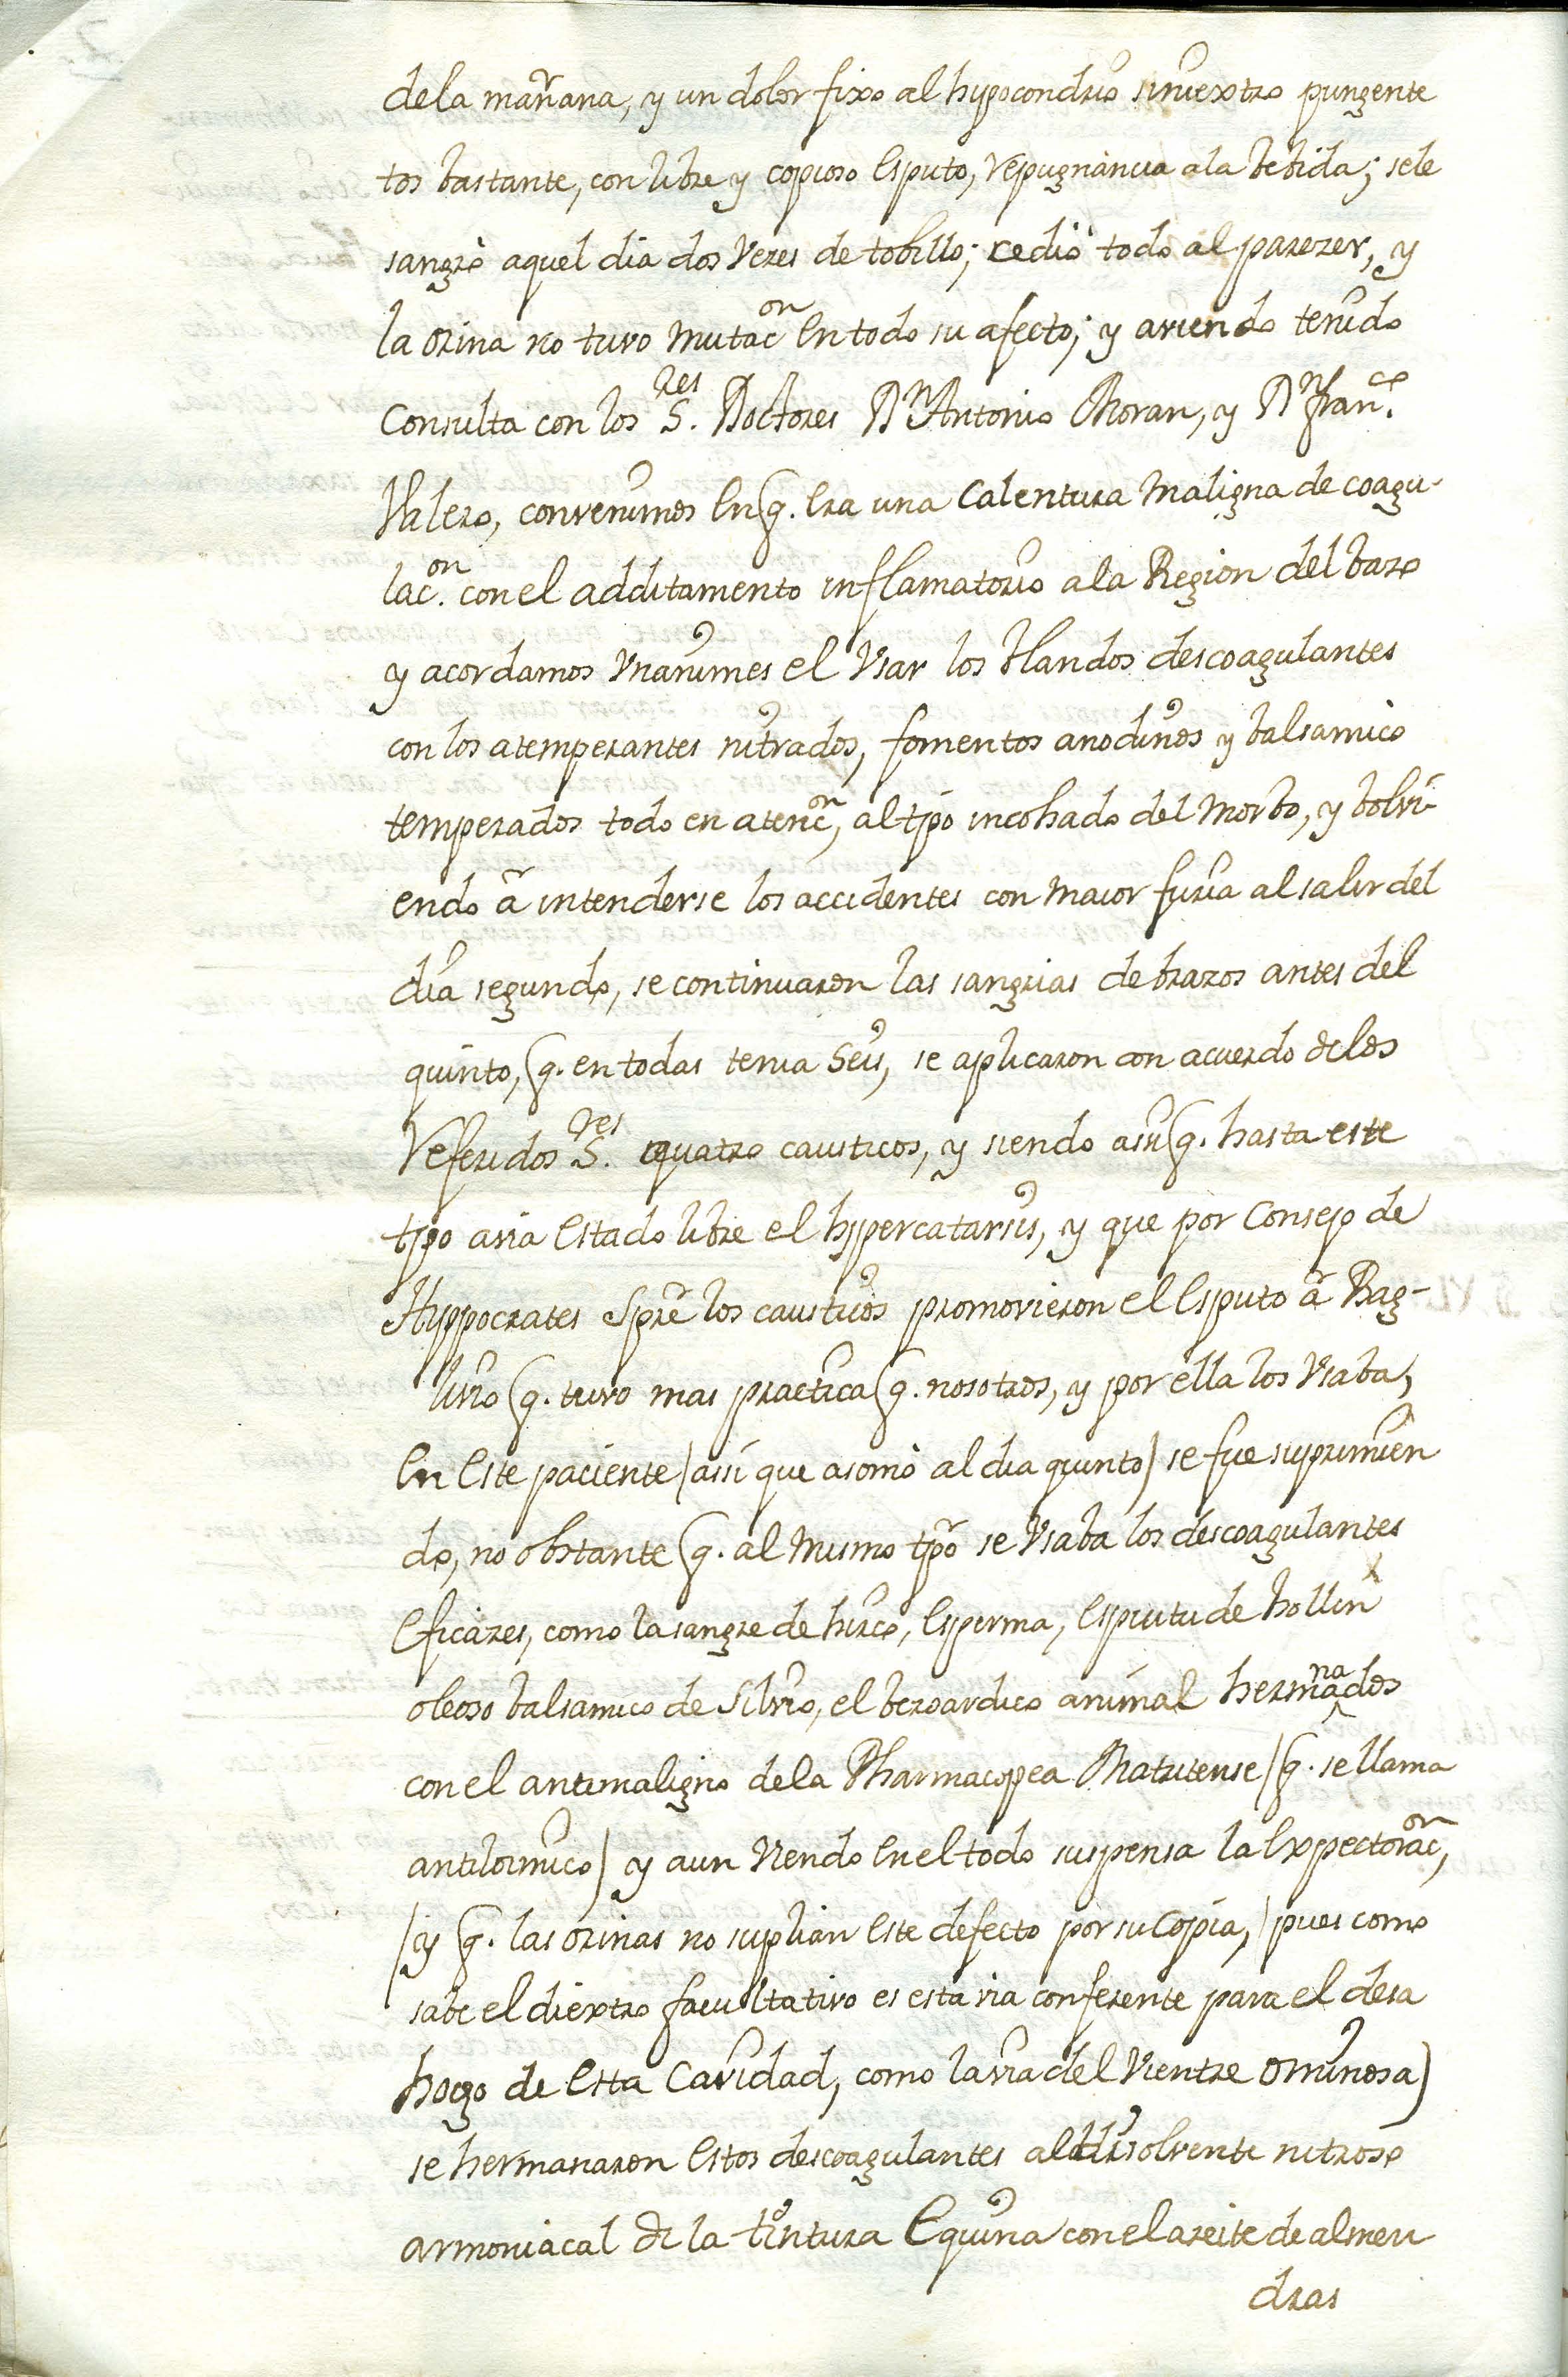 dela mañana, y un dolor fixo al hypocondrio siniextro pungente
tos bastante, con libre y copioso esputo, repugnancia ala bebida; sele
sangrò aquel dia dos vezes de tobillo; cedió todo al parezer, y
la orina no tuvo mutac.on en todo su afecto; y aviendo tenido
Consulta con los S.res Doctores Dn Antonio Moran, y Dn Fran.co
Valero, convenimos en q. era una Calentura Maligna de coagu-
lac.on con el additamento inflamatorio ala Region del bazo
y acordamos Vnanimes el Vsar los blandos descoagulantes
con los atemperantes nitrados, fomentos anodinos y balsamico
temperados todo en atenc.on, al tpo incohado del Morbo, y bolvi-
endo â intenderse los accidentes con maior furia al salir del
dia segundo, se continuaron las sangrias de brazos antes del
quinto, q. en todas tenia Seis, se aplicaron con acuerdo delos
Referidos S.res quatro causticos, y siendo assi q. hasta este
tpo avia estado libre el hypercatarsis, y que por Consejo de
Hyppocrates spre los causticos promovieron el esputo â Bag-
livio q. tuvo mas practica q. nosotros, y por ella los Vsaba,
en este paciente (assi que asomò al dia quinto) se fue suprimien
do, no obstante q. al mismo tpo se Vsaba los descoagulantes
eficazes, como la sangre de hirco, esperma, espiritu de hollin
oleoso balsamico de Silvio, el bezoardico animal hermanados
con el antimaligno dela Pharmacopea Matritense (q. se llama
antiloimico) y aun viendo en el todo suspensa la expectorac.on,
(y q. las orinas no suplian este defecto por su Copia, pues como
sabe el diextro facultativo es esta via conferente para el desa
hogo de esta Cavidad, como la via del Vientre ominosa)
se hermanaron estos descoagulantes al disolvente nitroso
armoniacal de la tintura equina con el azeite de almen
dras